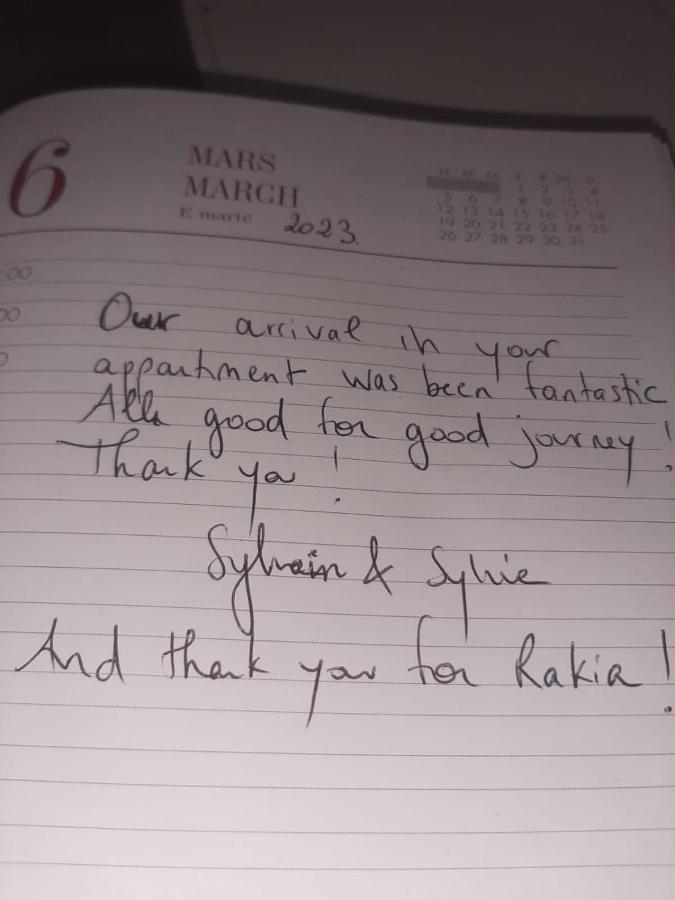 6
MARS
MARCH
E martë 2023.
1 2 3 4
5 6 7 8 9 10 11
12 13 14 15 16 17 18
19 20 21 22 23 24 25
26 27 28 29 30 31
:00
00
Our arrival in your
appartment was been fantastic
All good for good journey!
Thank you!
Sylvain & Sylvie
And thank you for Rakia!